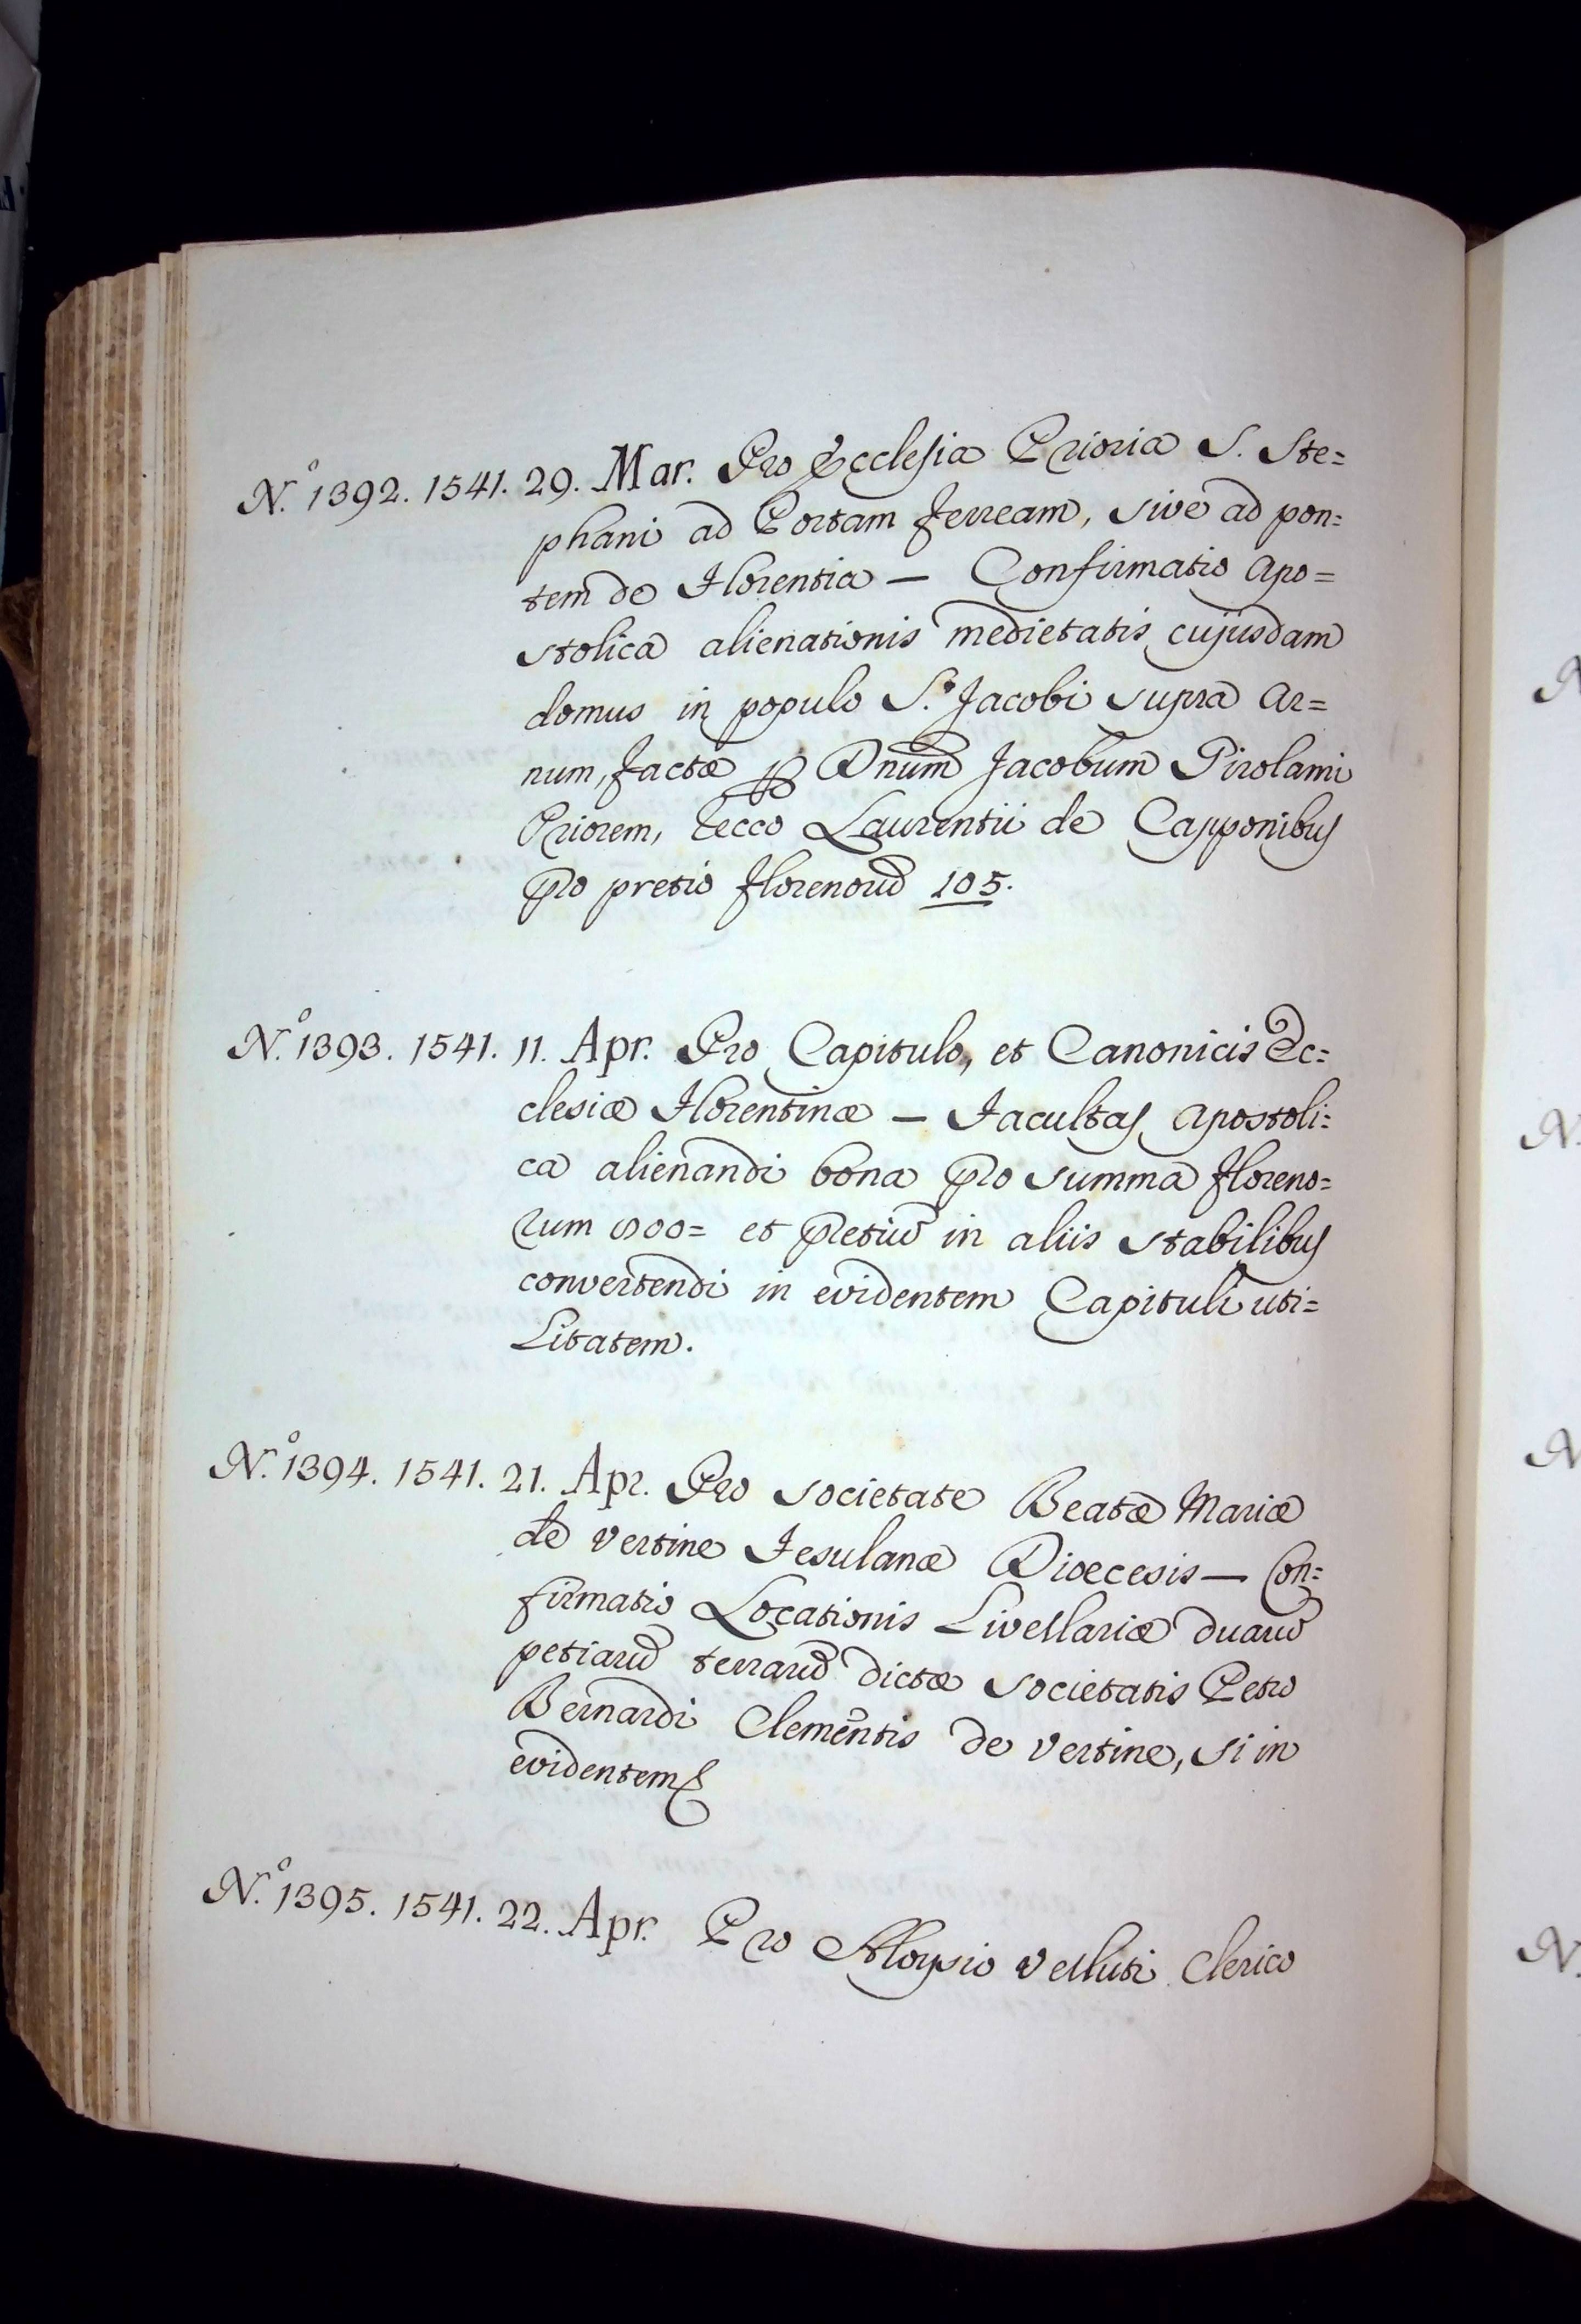 N.º 1392. 1541. 29. Mar. Pro Ecclesia Prioria S. Ste=
phani ad Portam ferream, sive ad pon=
tem de Florentia — Confirmatio Apo=
stolica alienationis medietatis cujusdam
domus in populo S.ti Jacobi supra Ar=
num, factæ Dnum Jacobum Girolami
Priorem, Cecco Laurentii de Capponibus
pro pretio florenorũ 105.
N.º 1393. 1541. 11. Apr. Pro Capitulo, et Canonicis Ec=
clesiæ Florentinæ — Facultas Apostoli=
ca alienandi bona pro summa floreno=
rum et pretiũ in aliis stabilibus
convertendi in evidentem Capituli uti=
litatem.
N.º 1394. 1541. 21. Apr. Pro Societate Beatæ Mariæ
de Vertine Fesulanæ Dioecesis — Con=
firmatio Locationis Livellariæ duarũ
petiarũ terrarũ dictæ Societatis Petro
Bernardi Clementis de Vertine, si in
evidentem
N.º 1395. 1541. 22. Apr. Pro Aloysio Velluti Clerico